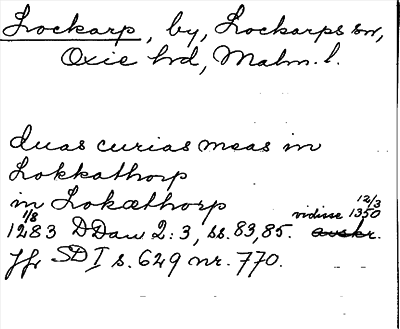 Lockarp, by, Lockarps sn,
Oxie hd, Malm. l.
duas curias meas in
Lokkathorp
in Lokæthorp
1/8 12/3
1283 DDan 2:3, ss. 83, 85. vidisse 1350 avskr.
Jfr SD I s. 649 nr. 770.